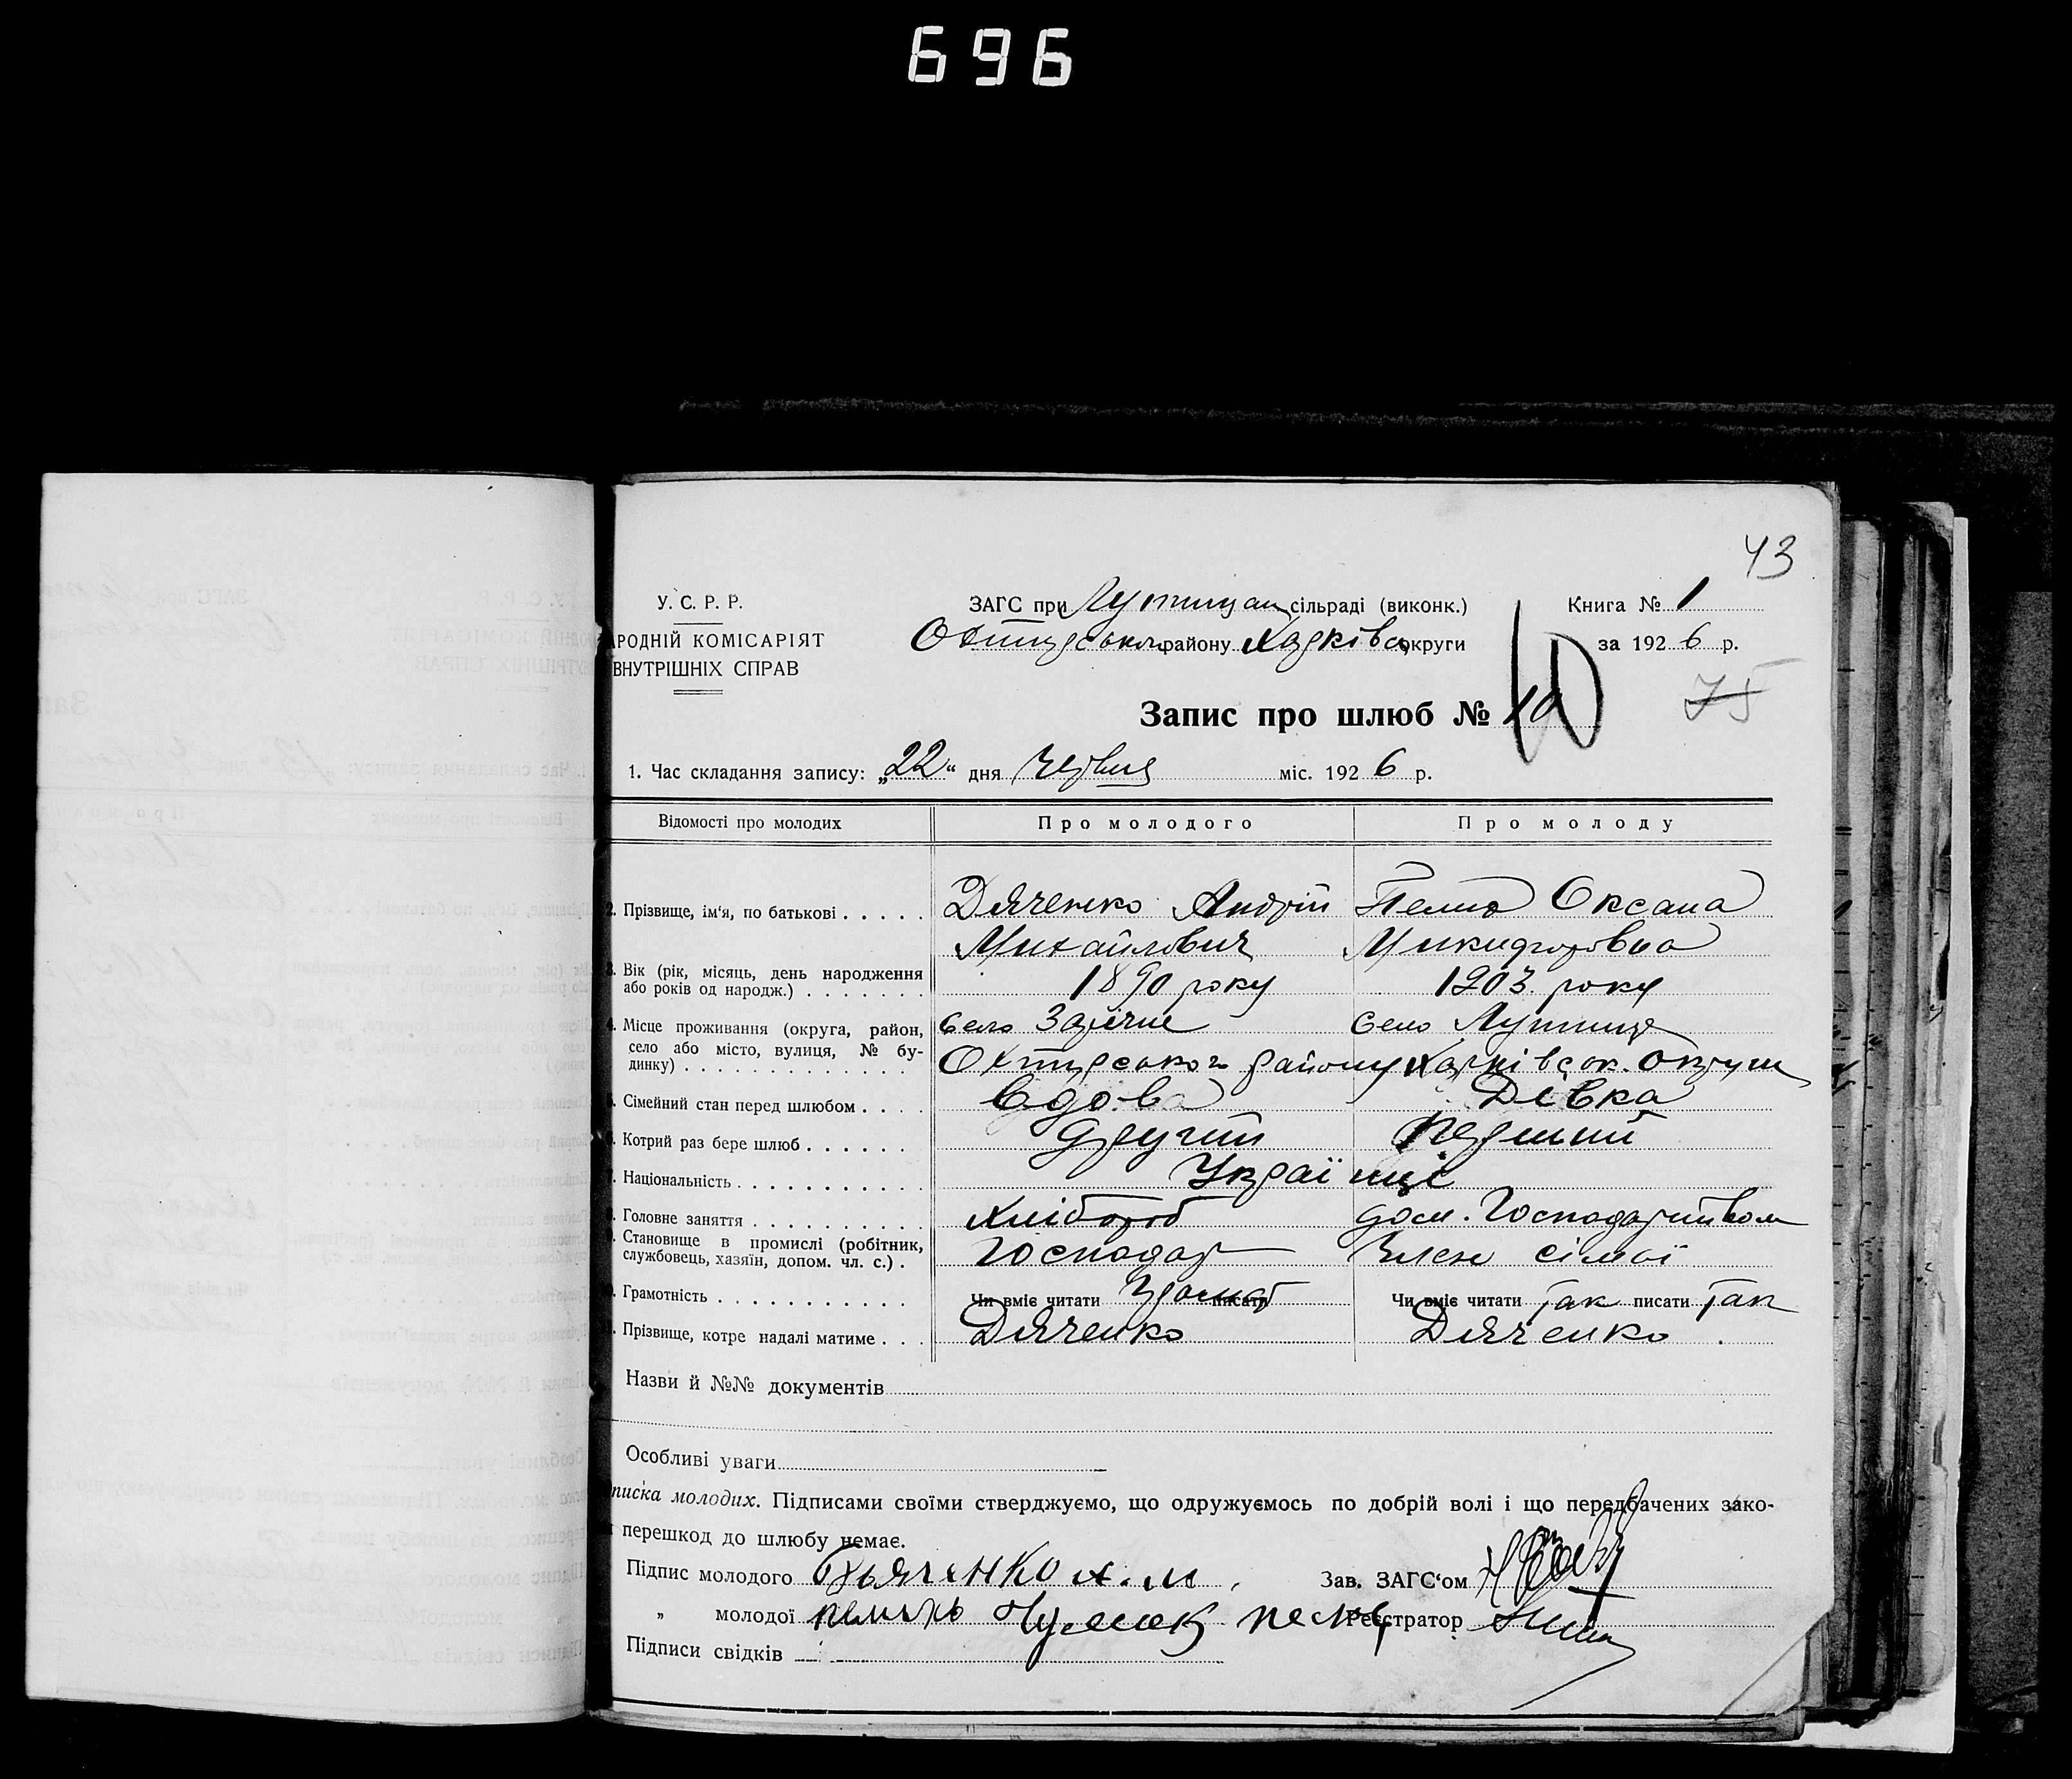 696
43
У. С. Р. Р.
ЗАГС при Лутищан сільраді (виконк.)
Книга № 1
РОДНІЙ КОМІСАРІЯТ
Охтирського району Харківсь округи
за 1926 р.
ВНУТРІШНІХ СПРАВ
Запис про шлюб № 10
75
1. Час складання запису: „22“ дня Червня міс. 1926 р.
Відомості про молодих
Про молодого
Про молоду
2. Прізвище, ім‘я, по батькові . . . . .
Дяченко Андрій
Оксана
Михайлович
Микифоровна
3. Вік (рік, місяць, день народження
або років од народж.) . . . . . . .
1890 року
1903 року
4. Місце проживання (округа, район,
село Зарічне
село Лутище
село або місто, вулиця, № бу-
динку) . . . . . . . . . . . . .
Охтирського району Харківськ. округи
Сімейний стан перед шлюбом . . . .
Вдова
Дівка
Котрий раз бере шлюб . . . . . .
другий
Перший
Національність . . . . . . . . . . .
Українці
Головне заняття . . . . . . . . . .
Хлібороб
дом. Господарством
Становище в промислі (робітник,
службовець, хазяїн, допом. чл. с.) .
Господар
Член сімої
Грамотність . . . . . . . . . . .
Чи вміє читати писати
Чи вміє читати Так писати Так
Прізвище, котре надалі матиме . . .
Дяченко
Дяченко
Назви й №№ документів
Особливі уваги
писка молодих. Підписами своїми стверджуємо, що одружуємось по добрій волі і що передбачених зако-
перешкод до шлюбу немає.
Підпис молодого Дьяченко А. М
Зав. ЗАГС‘ом
„ молодої
Реєстратор
Підписи свідків